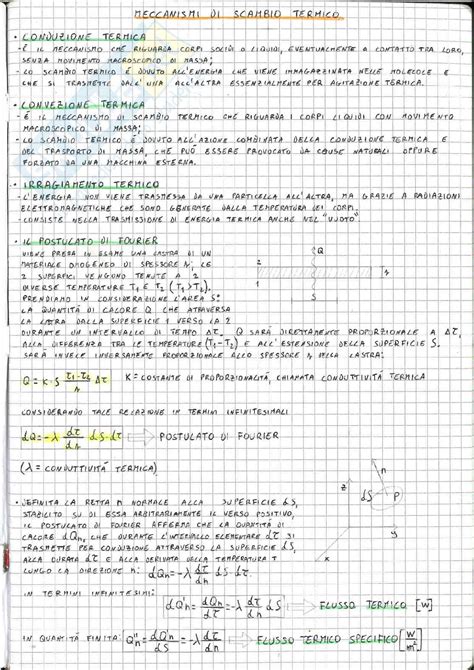 MECCANISMI DI SCAMBIO TERMICO
• CONDUZIONE TERMICA
- È IL MECCANISMO CHE RIGUARDA CORPI SOLIDI O LIQUIDI, EVENTUALMENTE A CONTATTO TRA LORO,
SENZA MOVIMENTO MACROSCOPICO DI MASSA;
- LO SCAMBIO TERMICO È DOVUTO ALL'ENERGIA CHE VIENE IMMAGAZZINATA NELLE MOLECOLE E
CHE SI TRASMETTE DALL'UNA ALL'ALTRA ESSENZIALMENTE PER AGITAZIONE TERMICA.
• CONVEZIONE TERMICA
- È IL MECCANISMO DI SCAMBIO TERMICO CHE RIGUARDA I CORPI LIQUIDI CON MOVIMENTO
MACROSCOPICO DI MASSA;
- LO SCAMBIO TERMICO È DOVUTO ALL'AZIONE COMBINATA DELLA CONDUZIONE TERMICA E
DEL TRASPORTO DI MASSA, CHE PUÒ ESSERE PROVOCATO DA CAUSE NATURALI OPPURE
FORZATO DA UNA MACCHINA ESTERNA.
• IRRAGIAMENTO TERMICO
- L'ENERGIA NON VIENE TRASMESSA DA UNA PARTICELLA ALL'ALTRA, MA GRAZIE A RADIAZIONI
ELETTROMAGNETICHE CHE SONO GENERATE DALLA TEMPERATURA DEI CORPI.
- CONSISTE NELLA TRASMISSIONE DI ENERGIA TERMICA ANCHE NEL "VUOTO"
• IL POSTULATO DI FOURIER
VIENE PRESA IN ESAME UNA LASTRA DI UN
MATERIALE OMOGENEO DI SPESSORE s; LE
2 SUPERFICI VENGONO TENUTE A 2
DIVERSE TEMPERATURE T1 E T2 (T1 > T2).
PRENDIAMO IN CONSIDERAZIONE L'AREA S:
LA QUANTITÀ DI CALORE Q CHE ATTRAVERSA
LA LASTRA DALLA SUPERFICIE 1 VERSO LA 2
DURANTE UN INTERVALLO DI TEMPO Δτ. Q SARÀ DIRETTAMENTE PROPORZIONALE A Δτ,
ALLA DIFFERENZA TRA LE TEMPERATURE (T1-T2) E ALL'ESTENSIONE DELLA SUPERFICIE S.
SARÀ INVECE INVERSAMENTE PROPORZIONALE ALLO SPESSORE s DELLA LASTRA:
Q
S
s
Q = K · S (T1-T2)/s Δτ K = COSTANTE DI PROPORZIONALITÀ, CHIAMATA CONDUTTIVITÀ TERMICA
CONSIDERANDO TALE RELAZIONE IN TERMINI INFINITESIMALI
dQ = -λ dT/ds dS · dτ ⇒ POSTULATO DI FOURIER
(λ = CONDUTTIVITÀ TERMICA)
• DEFINITA LA RETTA n NORMALE ALLA SUPERFICIE dS,
STABILITO SU DI ESSA ARBITRARIAMENTE IL VERSO POSITIVO,
IL POSTULATO DI FOURIER AFFERMA CHE LA QUANTITÀ DI
CALORE dQn, CHE DURANTE L'INTERVALLO ELEMENTARE dτ SI
TRASMETTE PER CONDUZIONE ATTRAVERSO LA SUPERFICIE dS,
ALLA DURATA dτ E ALLA DERIVATA DELLA TEMPERATURA T
LUNGO LA DIREZIONE n: dQn = -λ dT/dn dS · dτ
z
n
dS
P
y
x
IN TERMINI INFINITESIMI: dQ'n = dQn/dτ = -λ dT/dn dS ⇒ FLUSSO TERMICO [W]
IN QUANTITÀ FINITA: Q''n = dQ'n/dS = -λ dT/dn ⇒ FLUSSO TERMICO SPECIFICO [W/m²]